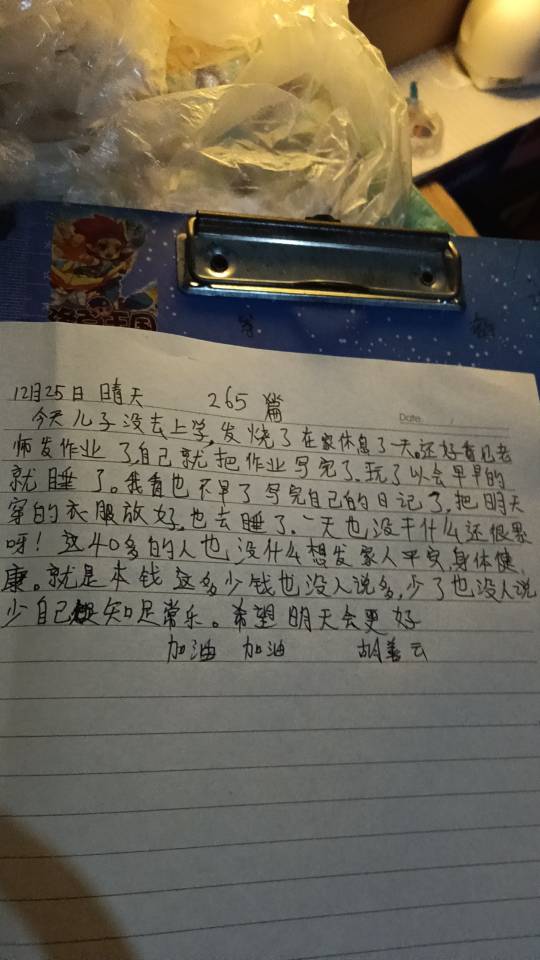 洛克王国
12月25日 晴天 265篇
Date:
今天儿子没去上学,发烧了在家休息了一天。还好看见老
师发作业了,自己就把作业写完了。玩了以会早早的
就睡了。我看也不早了写完自己的日记了,把明天
穿的衣服放好,也去睡了。一天也没干什么还很累
呀!这40多的人也没什么想发家人平安,身体健
康。就是本钱这多少钱也没人说多,少了也没人说
少自己知足常乐。希望明天会更好
加油 加油 胡善云